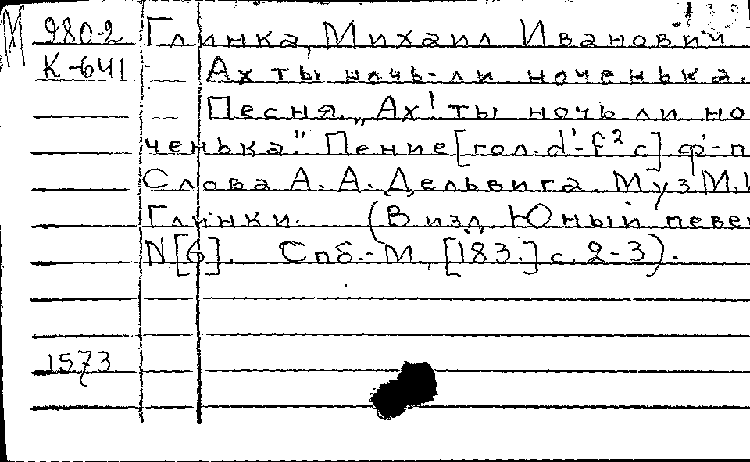 М 980-2 Глинка, Михаил Иванович
К-641 Ах ты ночь-ли ноченька.
Песня „Ах! ты ночь ли но
ченька". Пение [гол. d'-f² c] ф-п
Слова А. А. Дельвига. Муз М.
Глинки. (В изд. Юный певец
N [6]. Спб.-М., [183.] с. 2-3).
1573